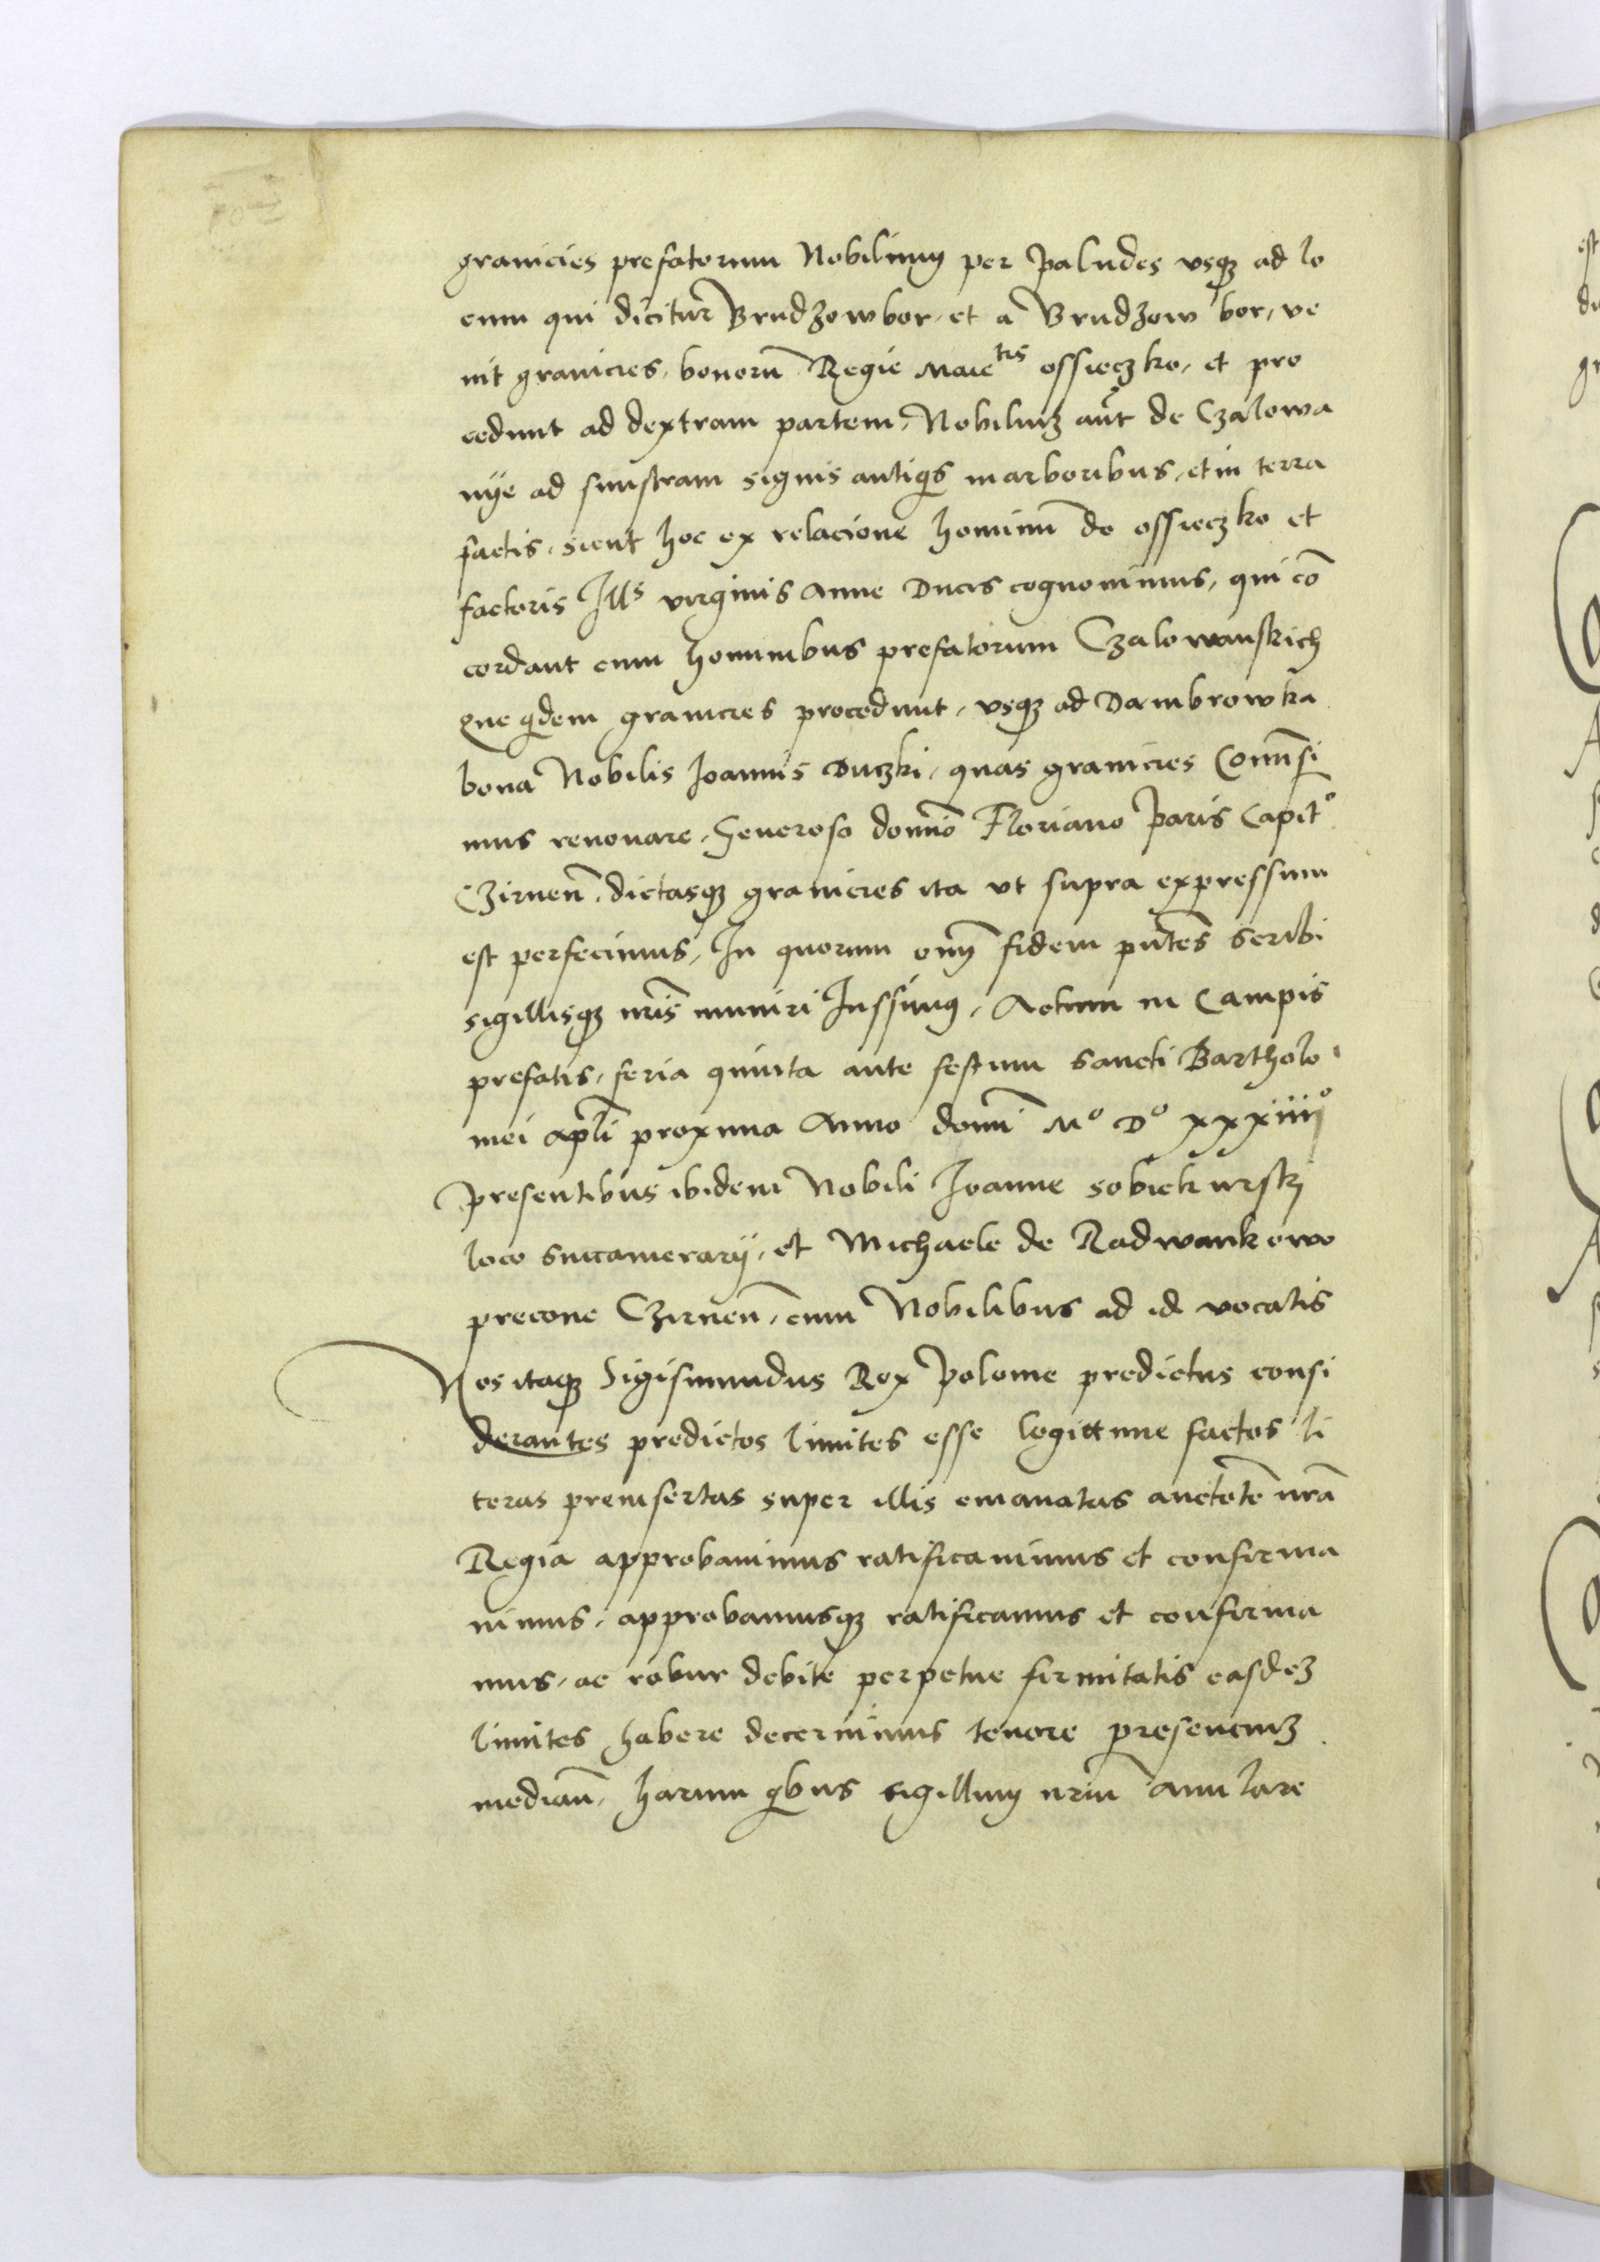 granicies prefatorum Nobilium per paludes vsqꝫ ad lo
cum qui dicitur Brudzowbor, et a Brudzow bor, ve
nit granicies, bonorũ Regie Maietis ossieczko, et pro
cedunt ad dextram partem, Nobiliuꝫ aũt de Czalowa
nije ad sinistram signis antiqis in arboribus, et in terra
factis, sicut hoc ex relacione hominũ de ossieczko et
factoris Ills virginis Anne Ducis cognouimus, qui cõ
cordant cum hominibus prefatorum Czalowanskich
que qidem granicies procedunt, vsqꝫ ad Dambrowka
bona Nobilis Joannis Duczki, quas granicies Comisi
mus renouare, Generoso domĩo Floriano Paris Capitº
Czirneñ, dictasqꝫ granicies ita vt supra expressum
est perfecimus, In quorum om̃ fidem pñtes scribi
sigillisqꝫ nr̃is muniri Jussimus, Actum in Campis
prefatis, feria quinta ante festum sancti Bartholo
mei apl̃i proxima Anno domĩ Mº Dº xxxiiijº
presentibus ibidem Nobili Joanne sobiekurskj
loco succamerarij, et Michaele de Radwankowo
precone Czirneñ, cum Nobilibus ad id vocatis
Nos itaqꝫ Sigismundus Rex Polonie predictus consi
derantes predictos limites esse legittime factos li
teras preinsertas super illis emanatas auctõtẽ nrã
Regia approbauimus ratificauimus et confirma
uimus, approbamusqꝫ ratificamus et confirma
mus, ac robur debite perpetue firmitatis easdeꝫ
limites habere decernimus tenore presenciuꝫ
mediañ, harum qibus sigillum nrũm anulare